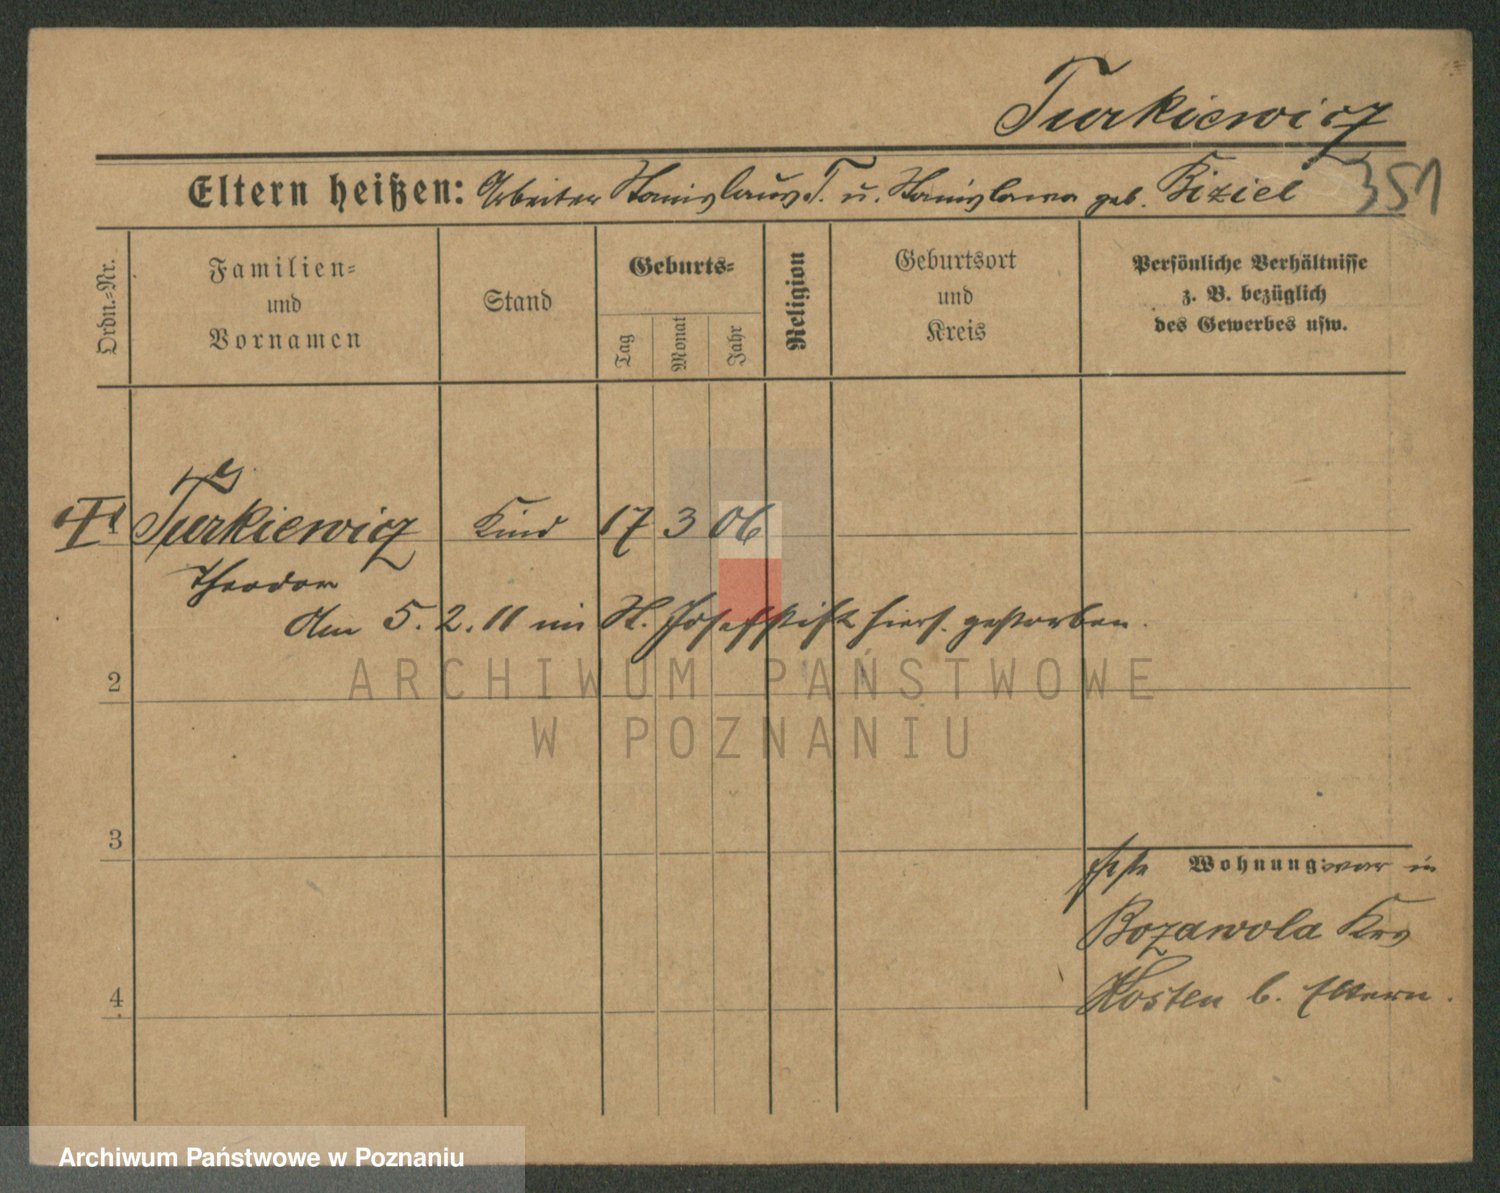 Turkiewicz
Eltern heißen: Arbeiter Stanislaus T. u. Stanislawa geb. Biziel
351
Ordn.-Nr.
Familien-
und
Vornamen
Stand
Geburts-
Tag
Monat
Jahr
Religion
Geburtsort
und
Kreis
Persönliche Verhältnisse
z. B. bezüglich
des Gewerbes usw.
Turkiewicz Kind 17 3 06
Theodor
Am 5. 2. 11 im St. Josefstift hiers. gestorben.
ARCHIWUM PAŃSTWOWE
W POZNANIU
2
3
Wohnung: war in
Bozawola Krs
Kosten b. Eltern.
4
Archiwum Państwowe w Poznaniu